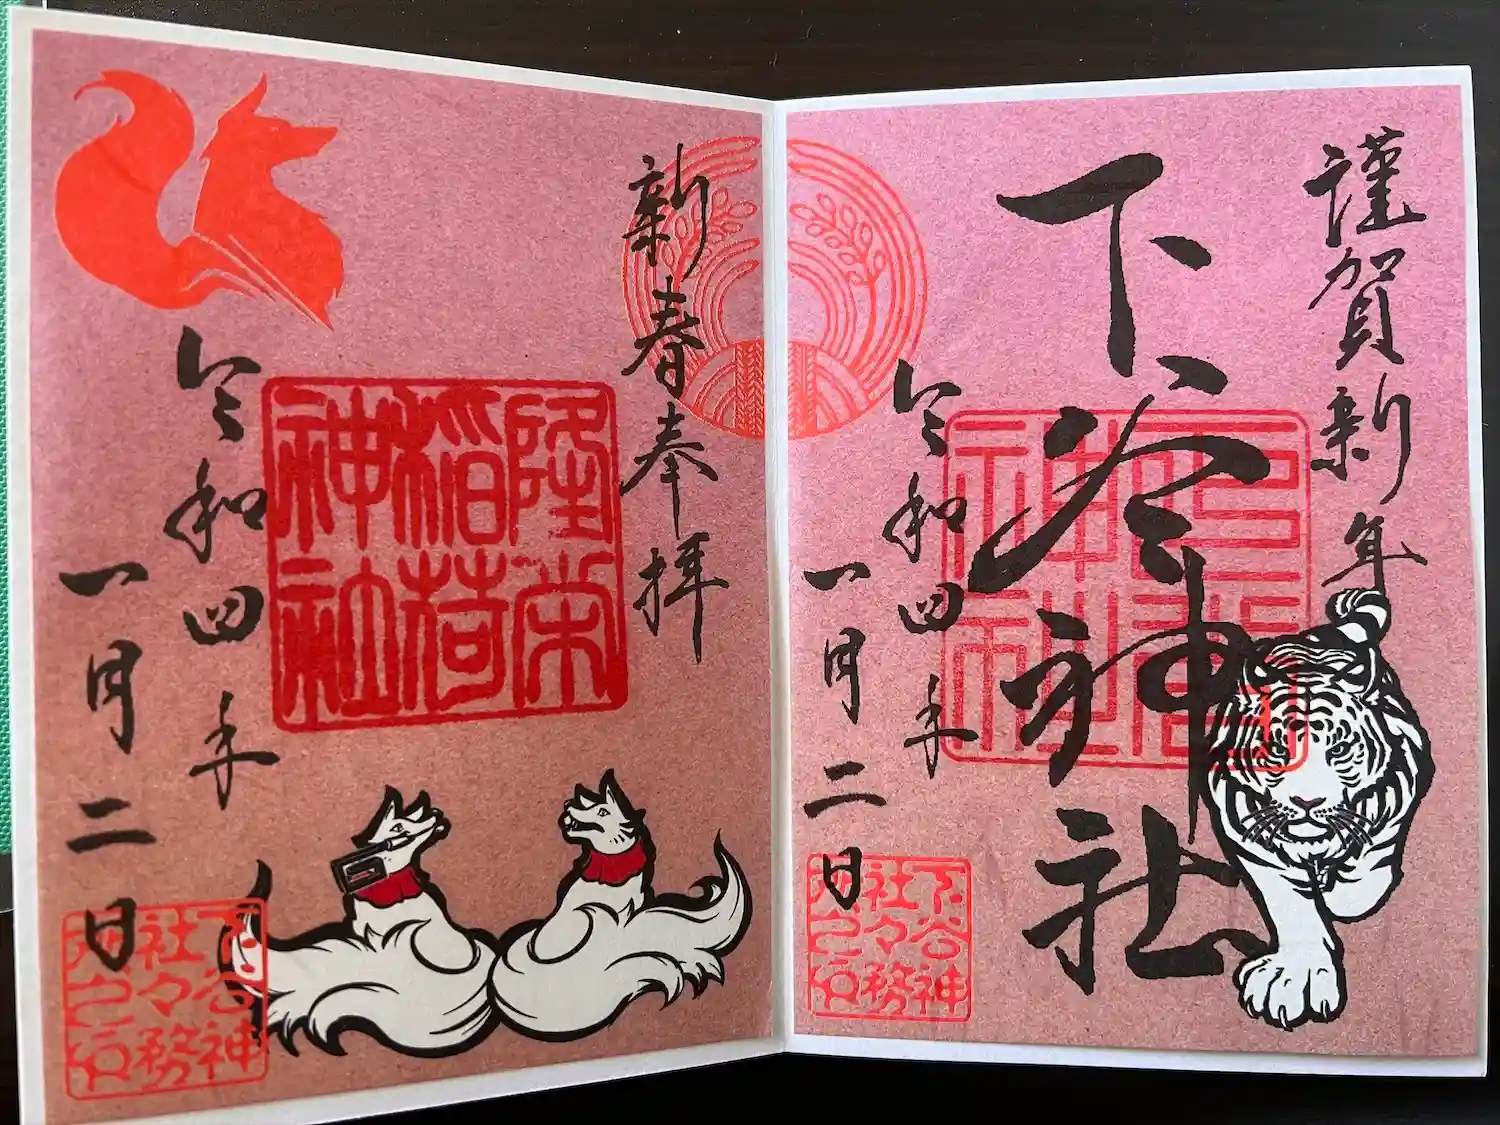 謹賀新年
下谷神社
令和四年
一月二日
下谷神
社々務
新春奉拝
隆栄
稲荷
神社
令和四年
一月二日
下谷神
社々務